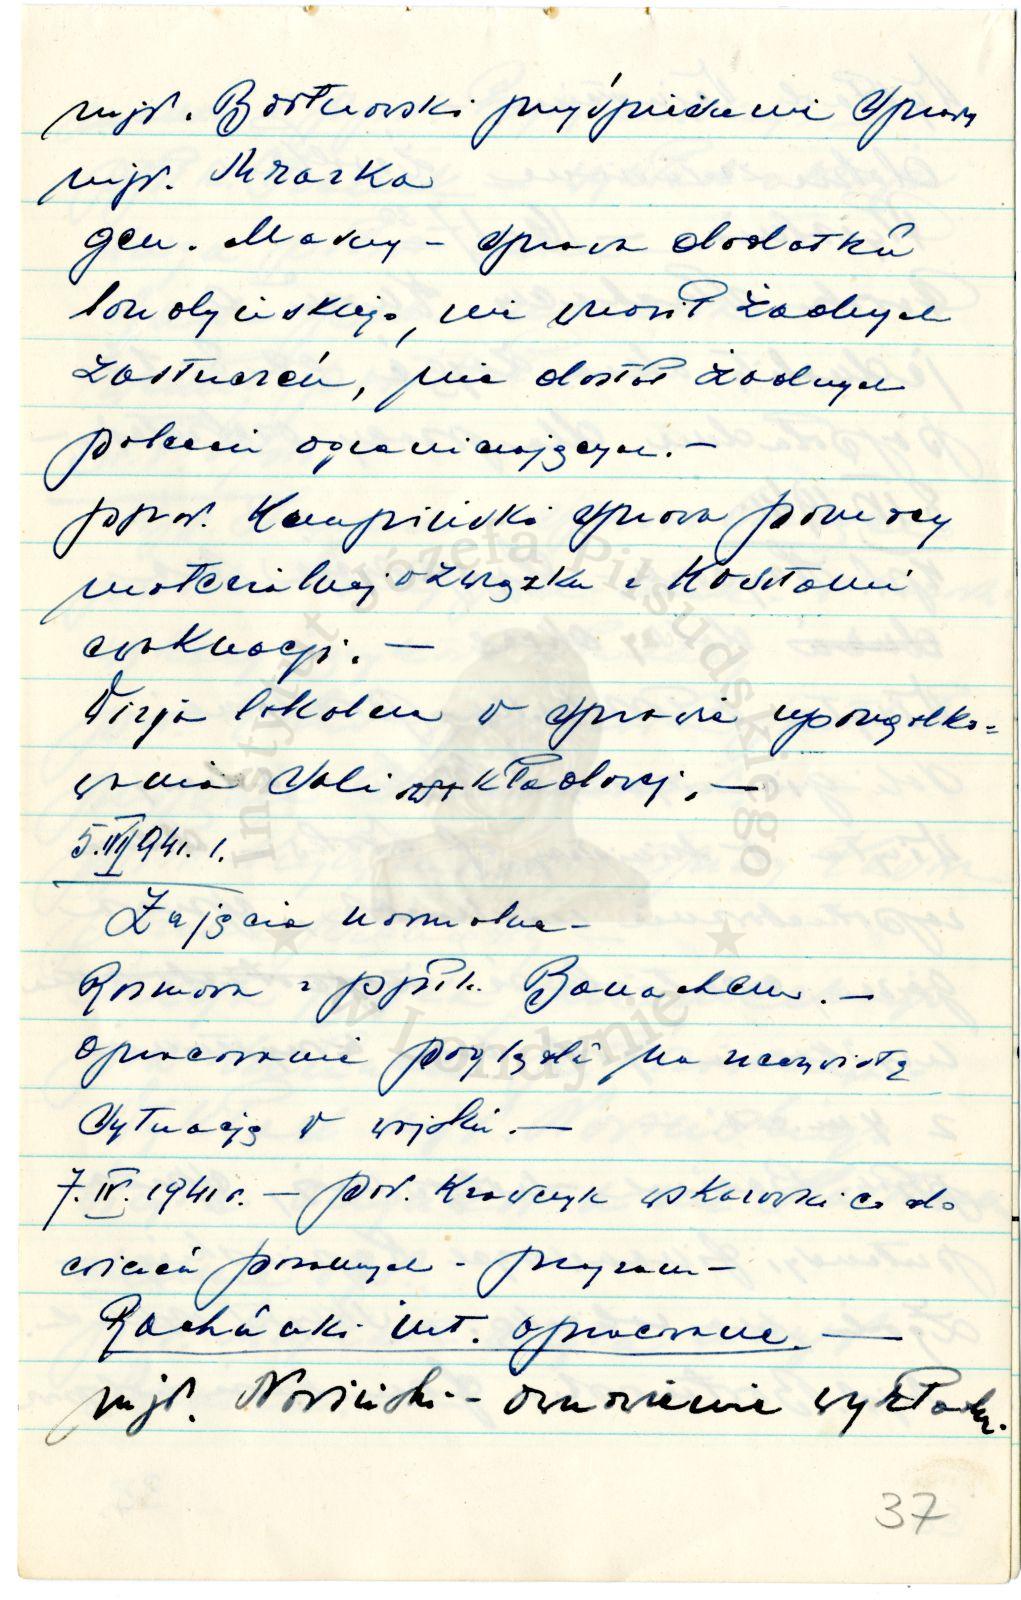 mjr. Bortnowski przyśpieszenie sprawy
mjr. Mrazka
gen. Malczy – sprawa dodatku
londyńskiego, nie wnosił żadnych
zastrzeżeń, nie dostał żadnych
poleceń ograniczających. –
ppor. Karpiński sprawa pomocy
materialnej w związku z kosztami
ewakuacji. –
Wizja lokalna w sprawie uporządko=
wania sali wykładowej. –
5.IV 1941. r.
Zajęcia normalne –
Rozmowa z ppłk. Banachem. –
opracowanie poglądu na rzeczywistą
sytuację w wojsku. –
7.IV. 1941 r. – por. Krawczyk wskazówki co do
ćwiczeń porannych – program –
Rachunki int. opracowane. –
mjr. Nowiński – omówienie wykładu.
37
Instytut Józefa Piłsudskiego
w Londynie